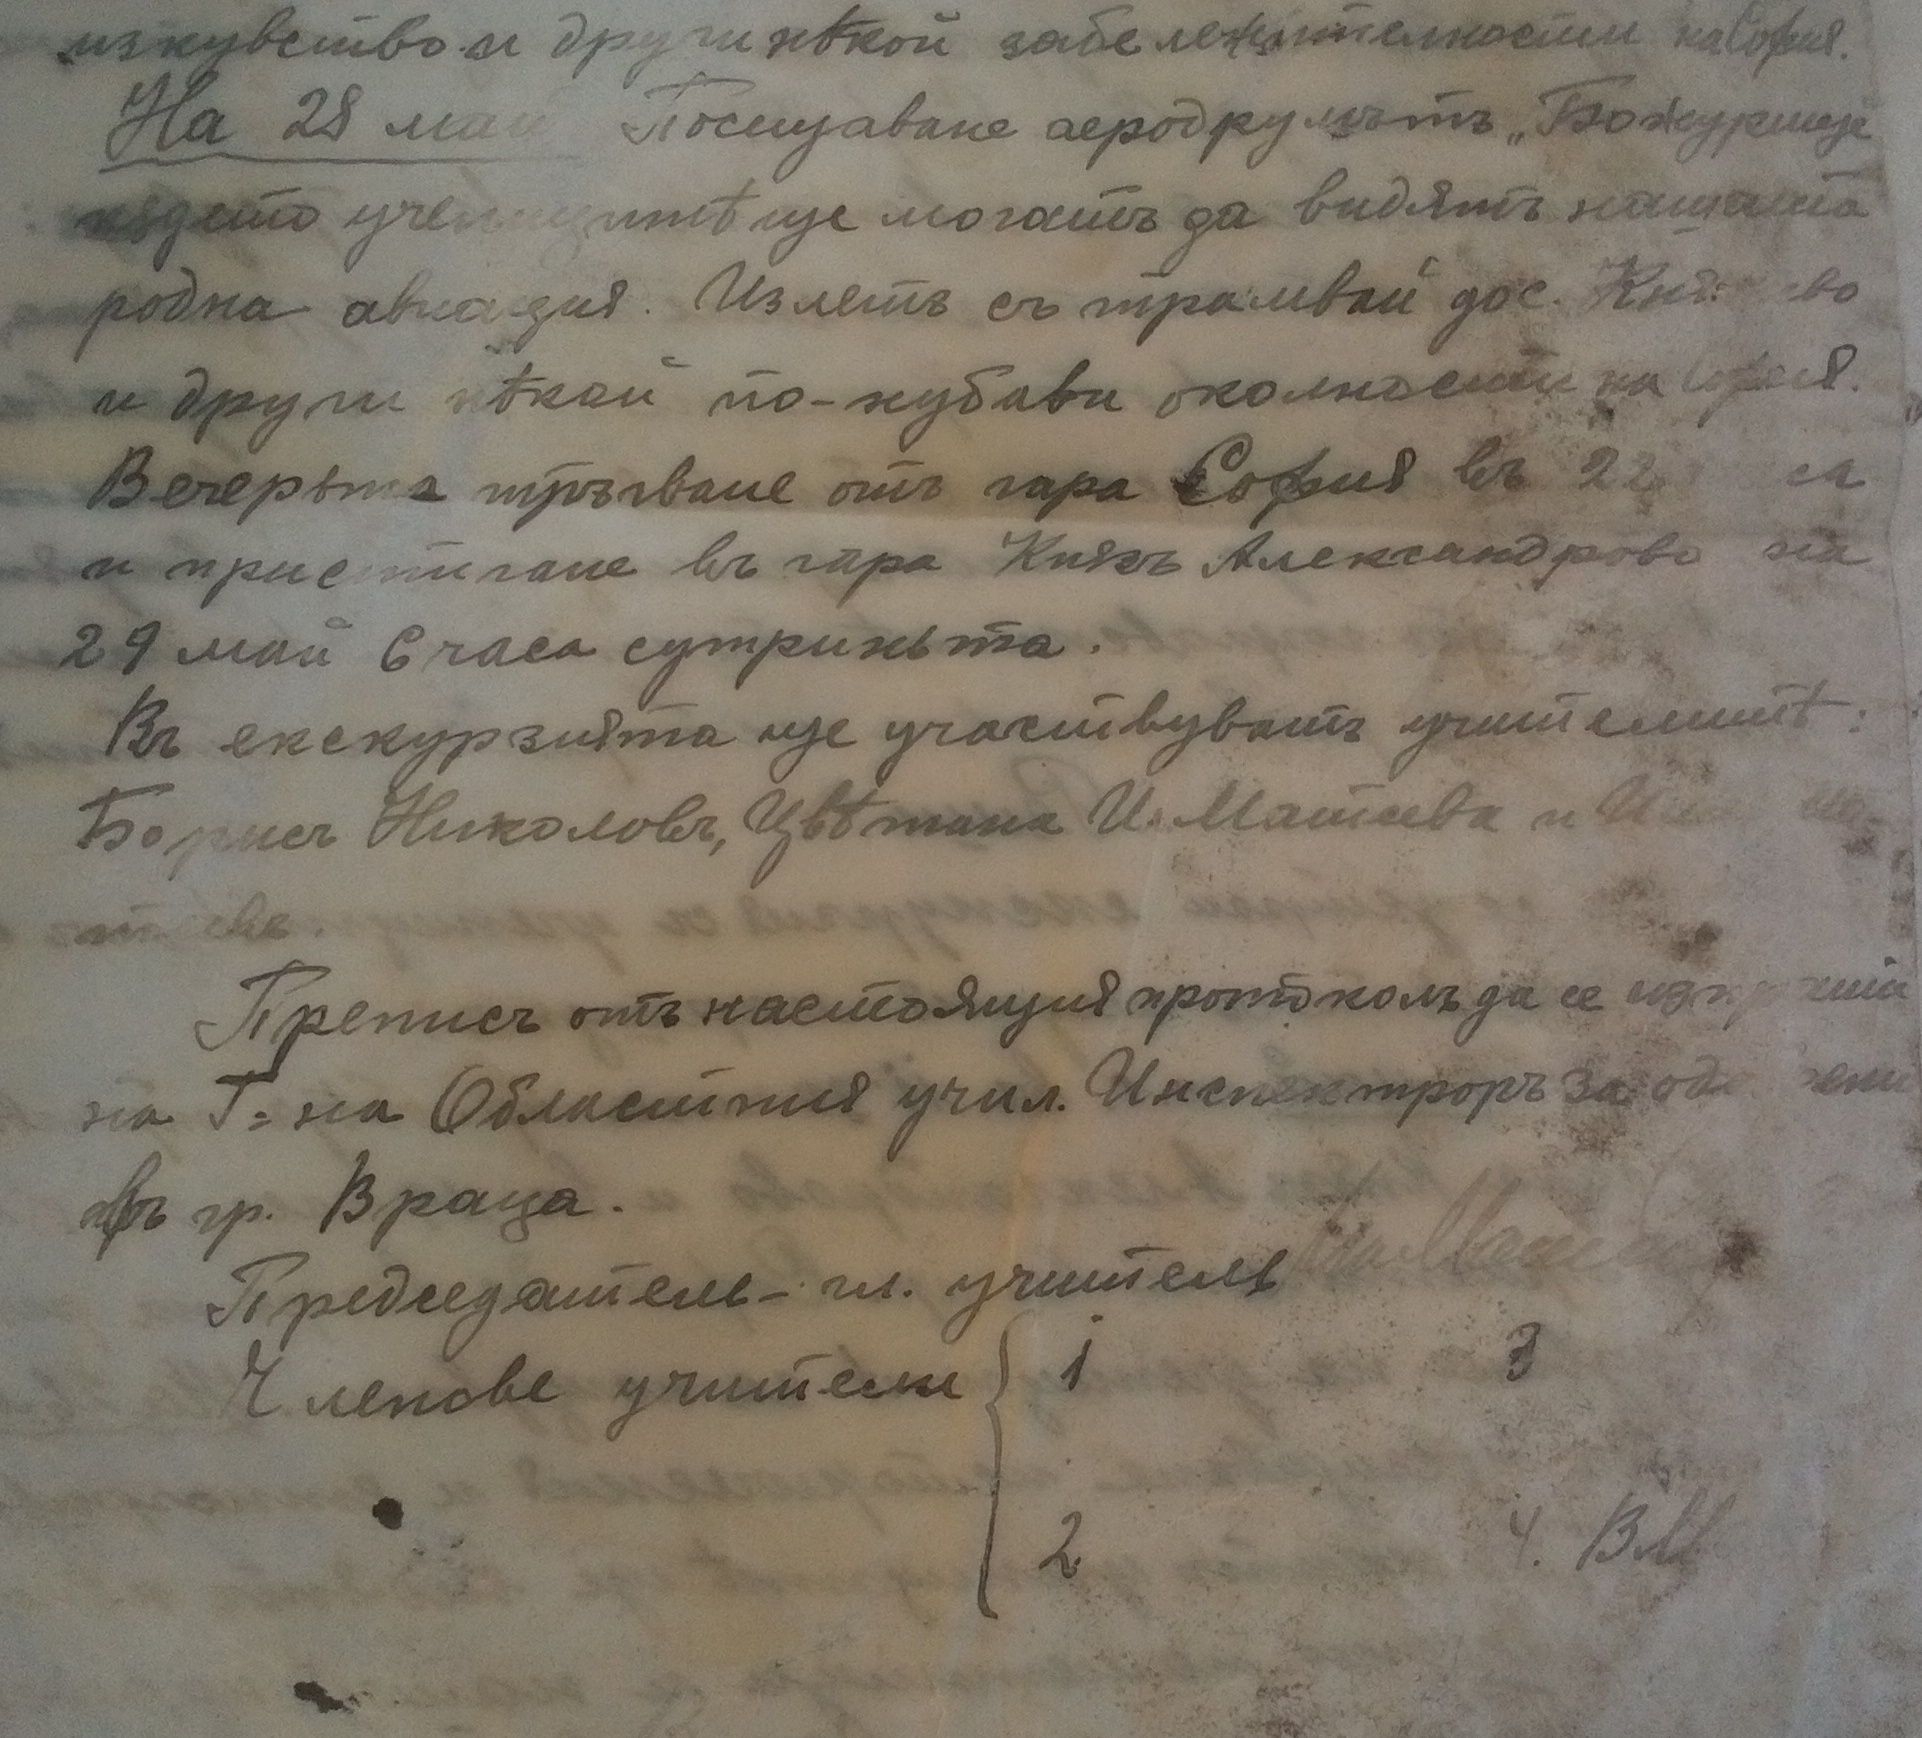 изкувство и други нѣкой забележителности на София.
На 28 май Посщаване аеродрумътъ „Божурище
където ученицитѣ ще могатъ да видятъ нашата
родна авиация. Излетъ съ трамвай до с. Княжево
и други нѣкой по-хубави околности на София.
Вечерьта тръгване отъ гара София въ 22
и пристигане въ гара Князъ Александрово на
29 май 6 часа сутриньта.
Въ екскурзията ще участвуватъ учителитѣ:
Борисъ Николовъ, Цвѣтана И. Матеева и
Преписъ отъ настоящия протоколъ да се изпрати
на Г-на Областния учил. Инспекторъ за
въ гр. Враца.
Председатель - гл. учитель
Членове учители { 1 3
2 4. ВМ